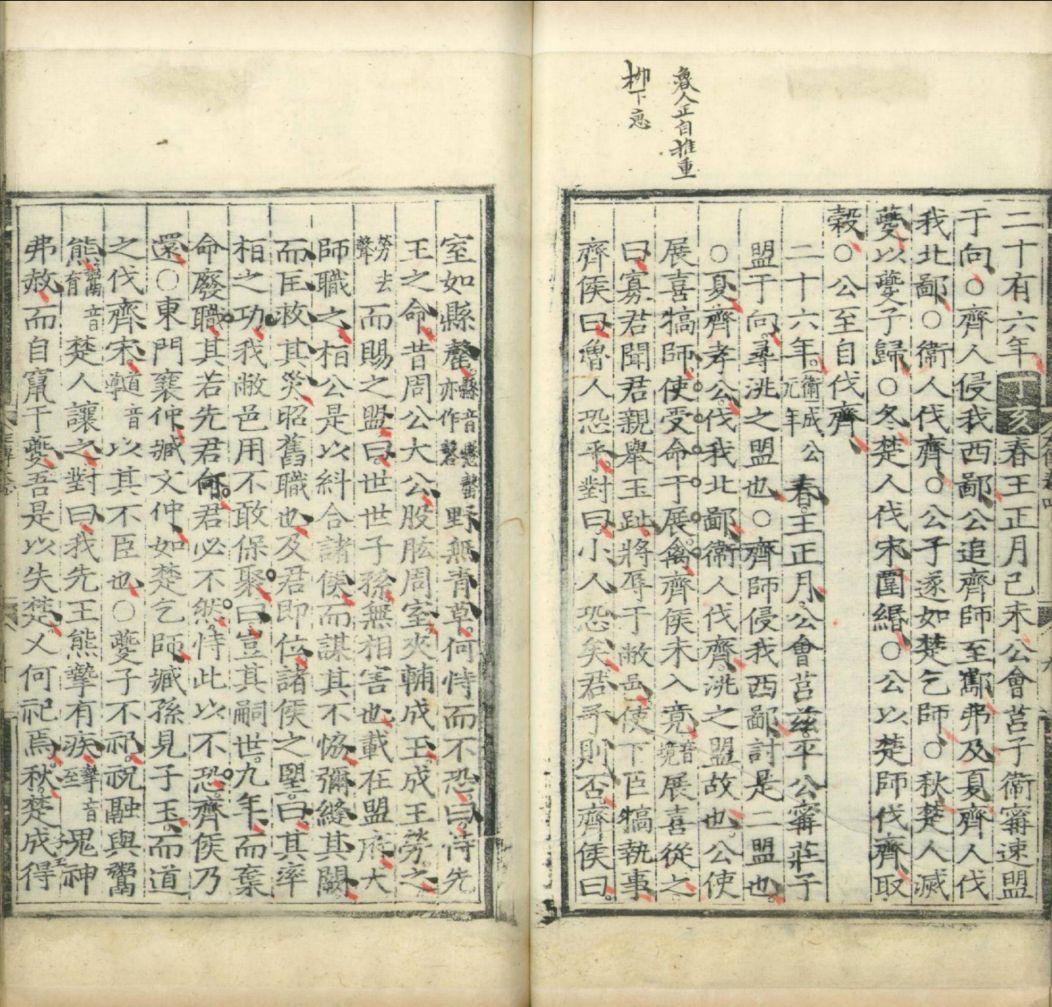 魯人正自推重
柳下惠
二十有六年丁亥春王正月己未公會莒子衛甯速盟
于向○齊人侵我西鄙公追齊師至酅弗及夏齊人伐
我北鄙○衛人伐齊○公子遂如楚乞師○秋楚人滅
夔以夔子歸○冬楚人伐宋圍緡○公以楚師伐齊取
穀○公至自伐齊
二十六年衛成公元年春王正月公會莒茲㔻公甯莊子
盟于向尋洮之盟也○齊師侵我西鄙討是二盟也
○夏齊孝公伐我北鄙衛人伐齊洮之盟故也公使
展喜犒師使受命于展禽齊侯未入竟音境展喜從之
曰寡君聞君親舉玉趾將辱于敝邑使下臣犒執事
齊侯曰魯人恐乎對曰小人恐矣君子則否齊侯曰
室如縣罄縣音懸罄亦作磬野無青草何恃而不恐曰恃先
王之命昔周公大公股肱周室夾輔成王成王勞之
勞去聲而賜之盟曰世世子孫無相害也載在盟府大
師職之桓公是以糾合諸侯而謀其不協彌縫其闕
而匡救其災昭舊職也及君即位諸侯之望曰其率
桓之功我敝邑用不敢保聚曰豈其嗣世九年而棄
命廢職其若先君何君必不然恃此以不恐齊侯乃
還○東門襄仲臧文仲如楚乞師臧孫見子玉而道
之伐齊宋道音導以其不臣也○夔子不祀祝融與鬻
熊鬻音育楚人讓之對曰我先王熊摯有疾摯音至鬼神
弗赦而自竄于夔吾是以失楚又何祀焉秋楚成得